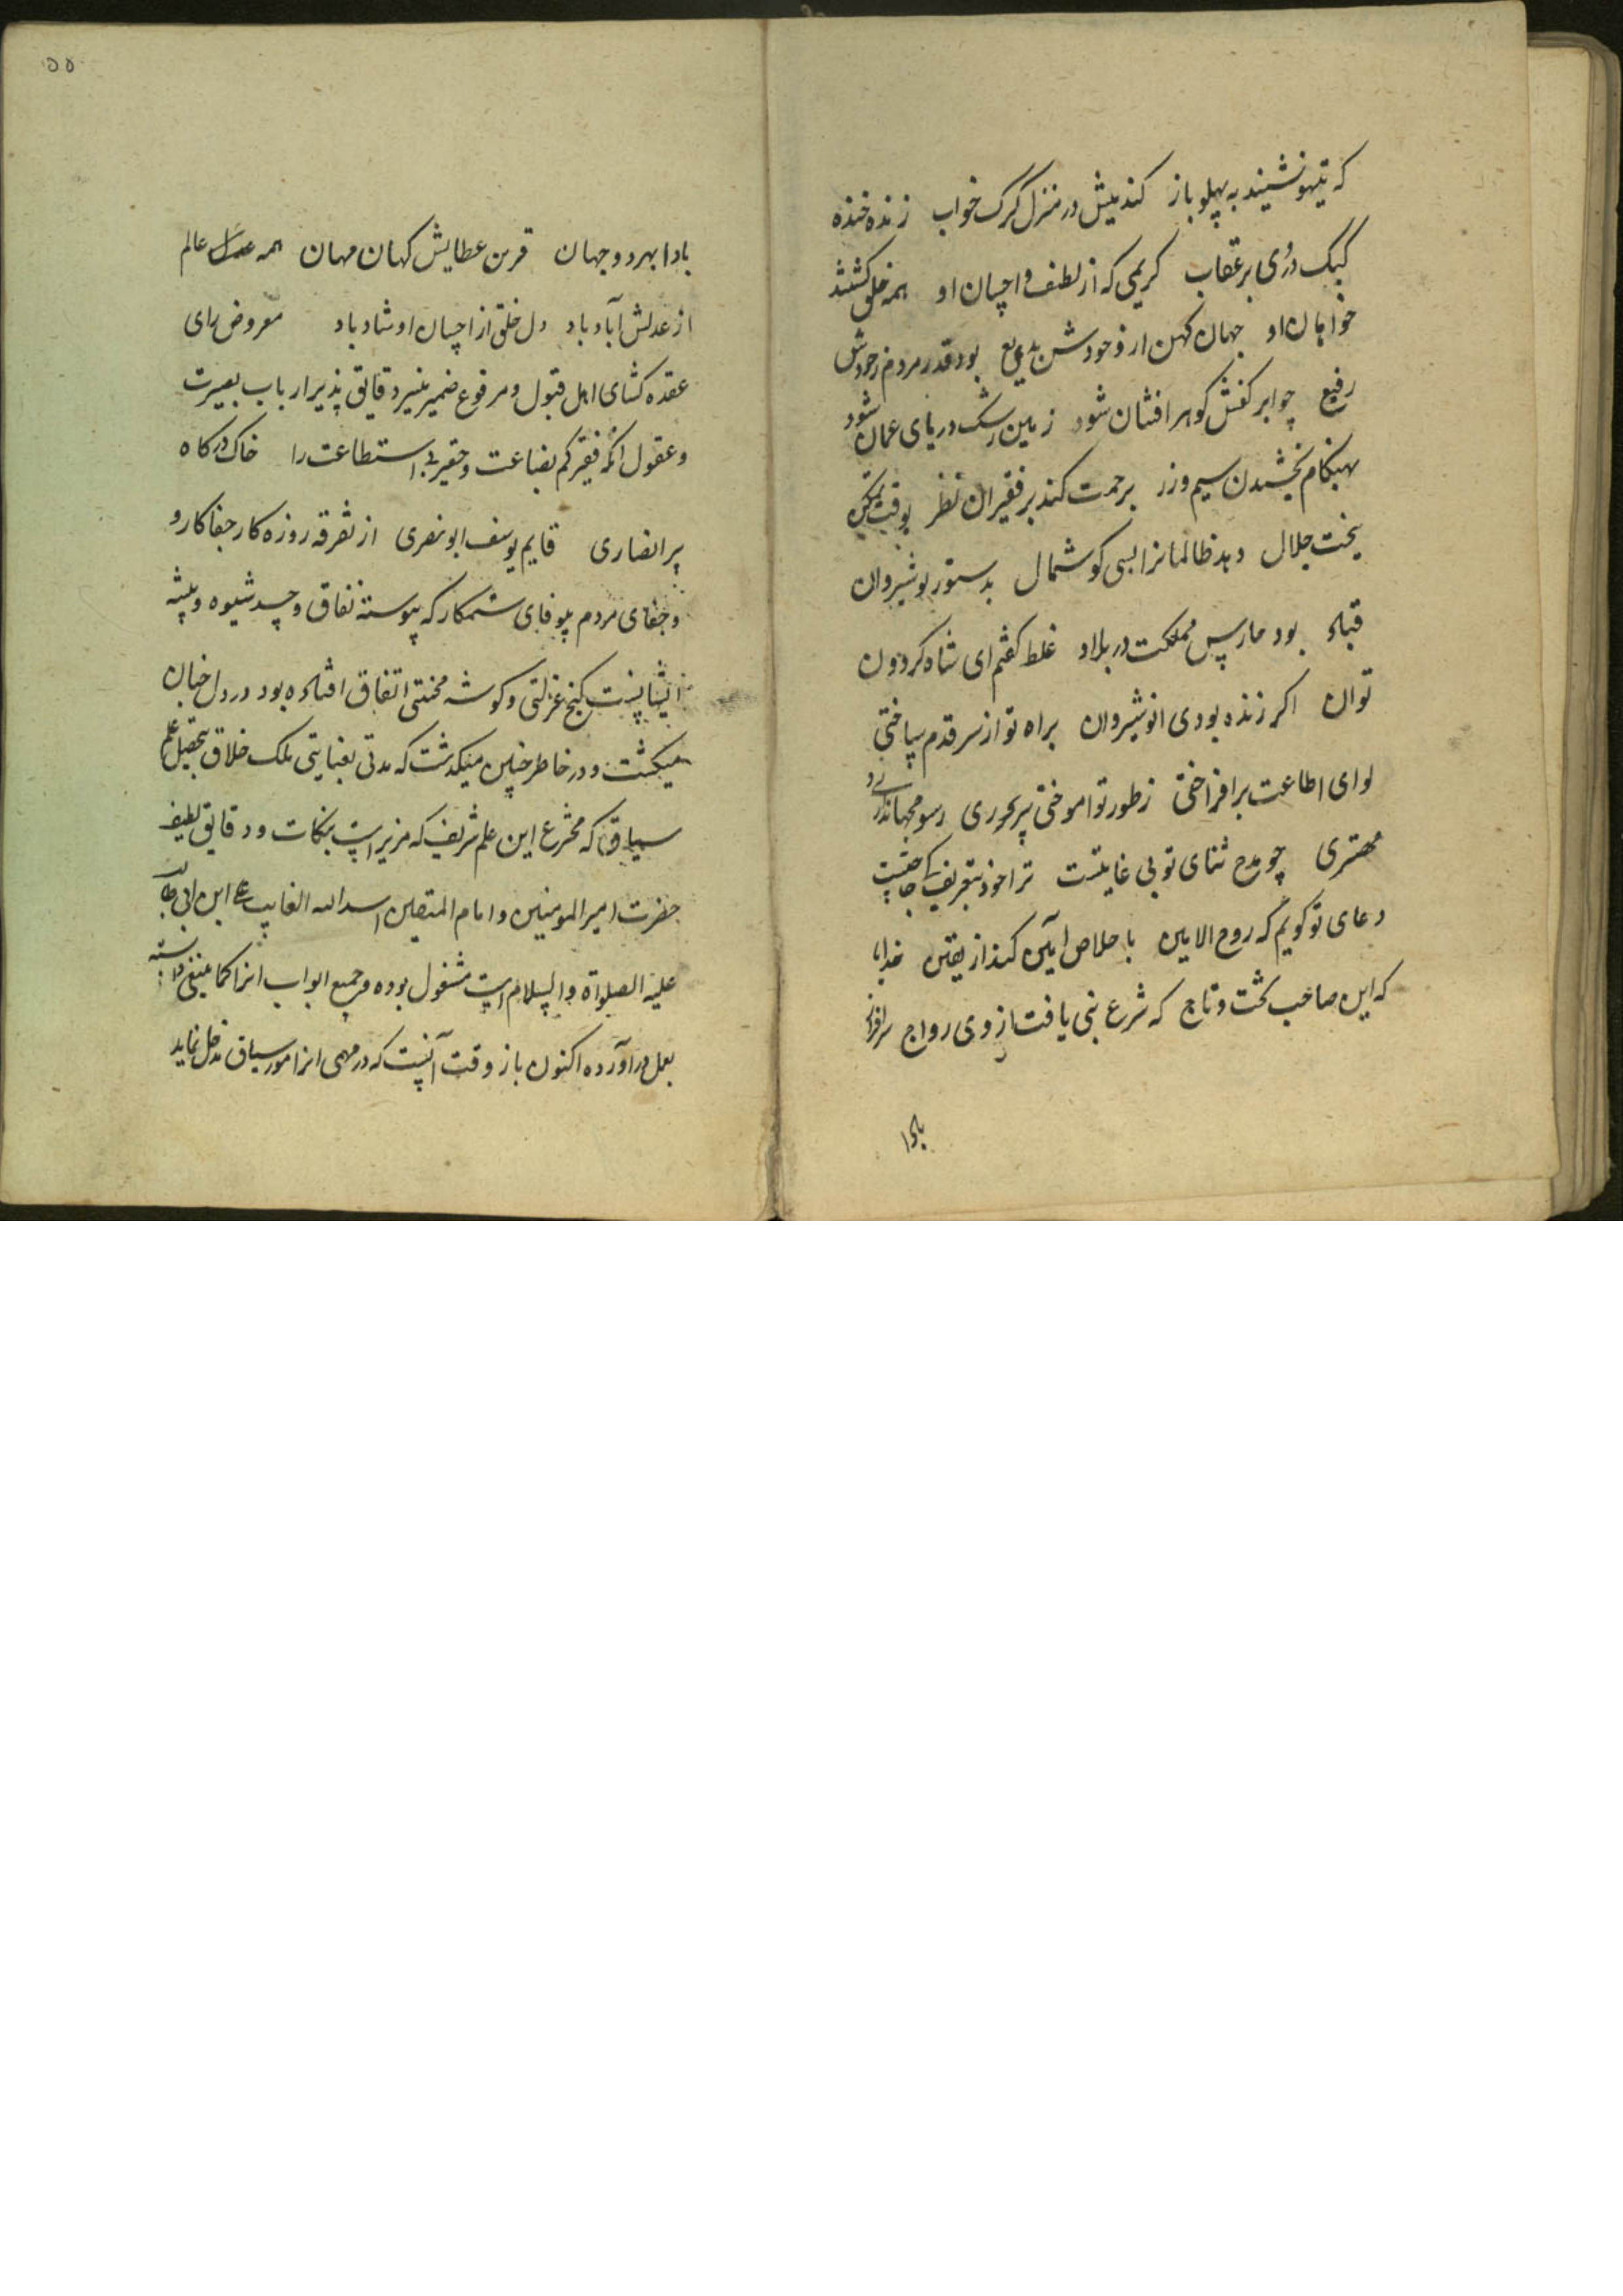 که تیهو نشیند به پهلو باز کند میش در منزل گرگ خواب زند خنده
کبک دری بر عقاب کریمی که از لطف و احسان او همه خلق کشتند
خواهان او جهان کهن از وجودش بدیع بود قدر مردم زجودش
رفیع چو ابر کفش گوهر افشان شود زمین رشک دریای عمان شود
بهنگام بخشیدن سیم و زر برحمت کند بر فقیران نظر بوقت تمکن
بتخت جلال دهد ظالمانرا بسی گوشمال بدستور نوشیروان
قباد بود حارس مملکت در بلاد غلط گفتم ای شاه گردون
توان اگر زنده بودی انوشیروان براه تو از سر قدم ساختی
لوای اطاعت برافراختی ز طور تو اموختی سروری رسوم جهانداری و
مهتری چو مدح ثنای تو بی غایتست ترا خود بتعریف کی حاجتست
دعای تو گویم که روح الامین باخلاص آمین کند از یقین خدایا
که این صاحب تخت و تاج که شرع نبی یافت از وی رواج سرافراز
بادا
۵۵
بادا بهر دو جهان قرین عطایش کهان و مهان همه عالم
از عدلش آباد باد دل خلق از احسان او شاد باد معروض رای
عقده کشای اهل قبول و مرفوع ضمیر منیر دقایق پذیر ارباب بصیرت
و عقول انکه فقیر کم بضاعت و حقیر بی استطاعت را خاک درکاه
پیر انصاری قایم یوسف ابو نصری از تفرقه روزه کار جفا کار و
و جفای مردم بیوفای ستمکار که پیوسته نفاق و حسد شیوه و پیشه
ایشانست کنج عزلتی و کوشه محنتی اتفاق افتاده بود در دل خیان
میکشت و در خاطر چنین میکذشت که مدتی بعنایتی ملک خلاق بتحصیل علم
سیاق که مخترع این علم شریف که مزین است بنکات و دقایق لطیف
حضرت امیر المومنین و امام المتقین اسد الله الغالب علی ابن ابی طالب
علیه الصلواة والسلام است مشغول بوده و جمیع ابواب انرا کما ینبغی دانسته
بعمل دراورده اکنون باز وقت آنست که در مهمی از امور سیاق مدخل نماید